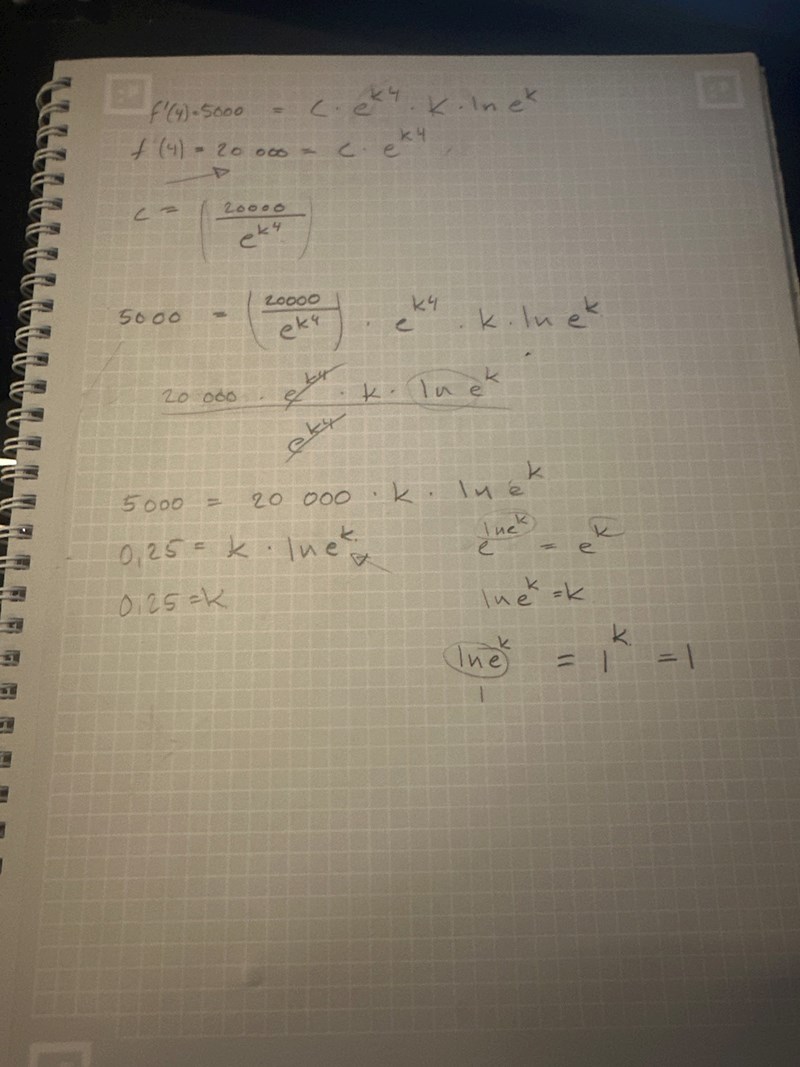 f'(4)=5000 = C · e^k4 · k · ln e^k
f'(4) = 20 000 = C · e^k4
C = (20000 / e^k4)
5000 = (20000 / e^k4) · e^k4 · k · ln e^k
20 000 · e^k4 · k · ln e^k / e^k4
5000 = 20 000 · k · ln e^k
0,25 = k · ln e^k
e^ln e^k = e^k
0,25 = k
ln e^k = k
ln e^k = 1^k = 1
1